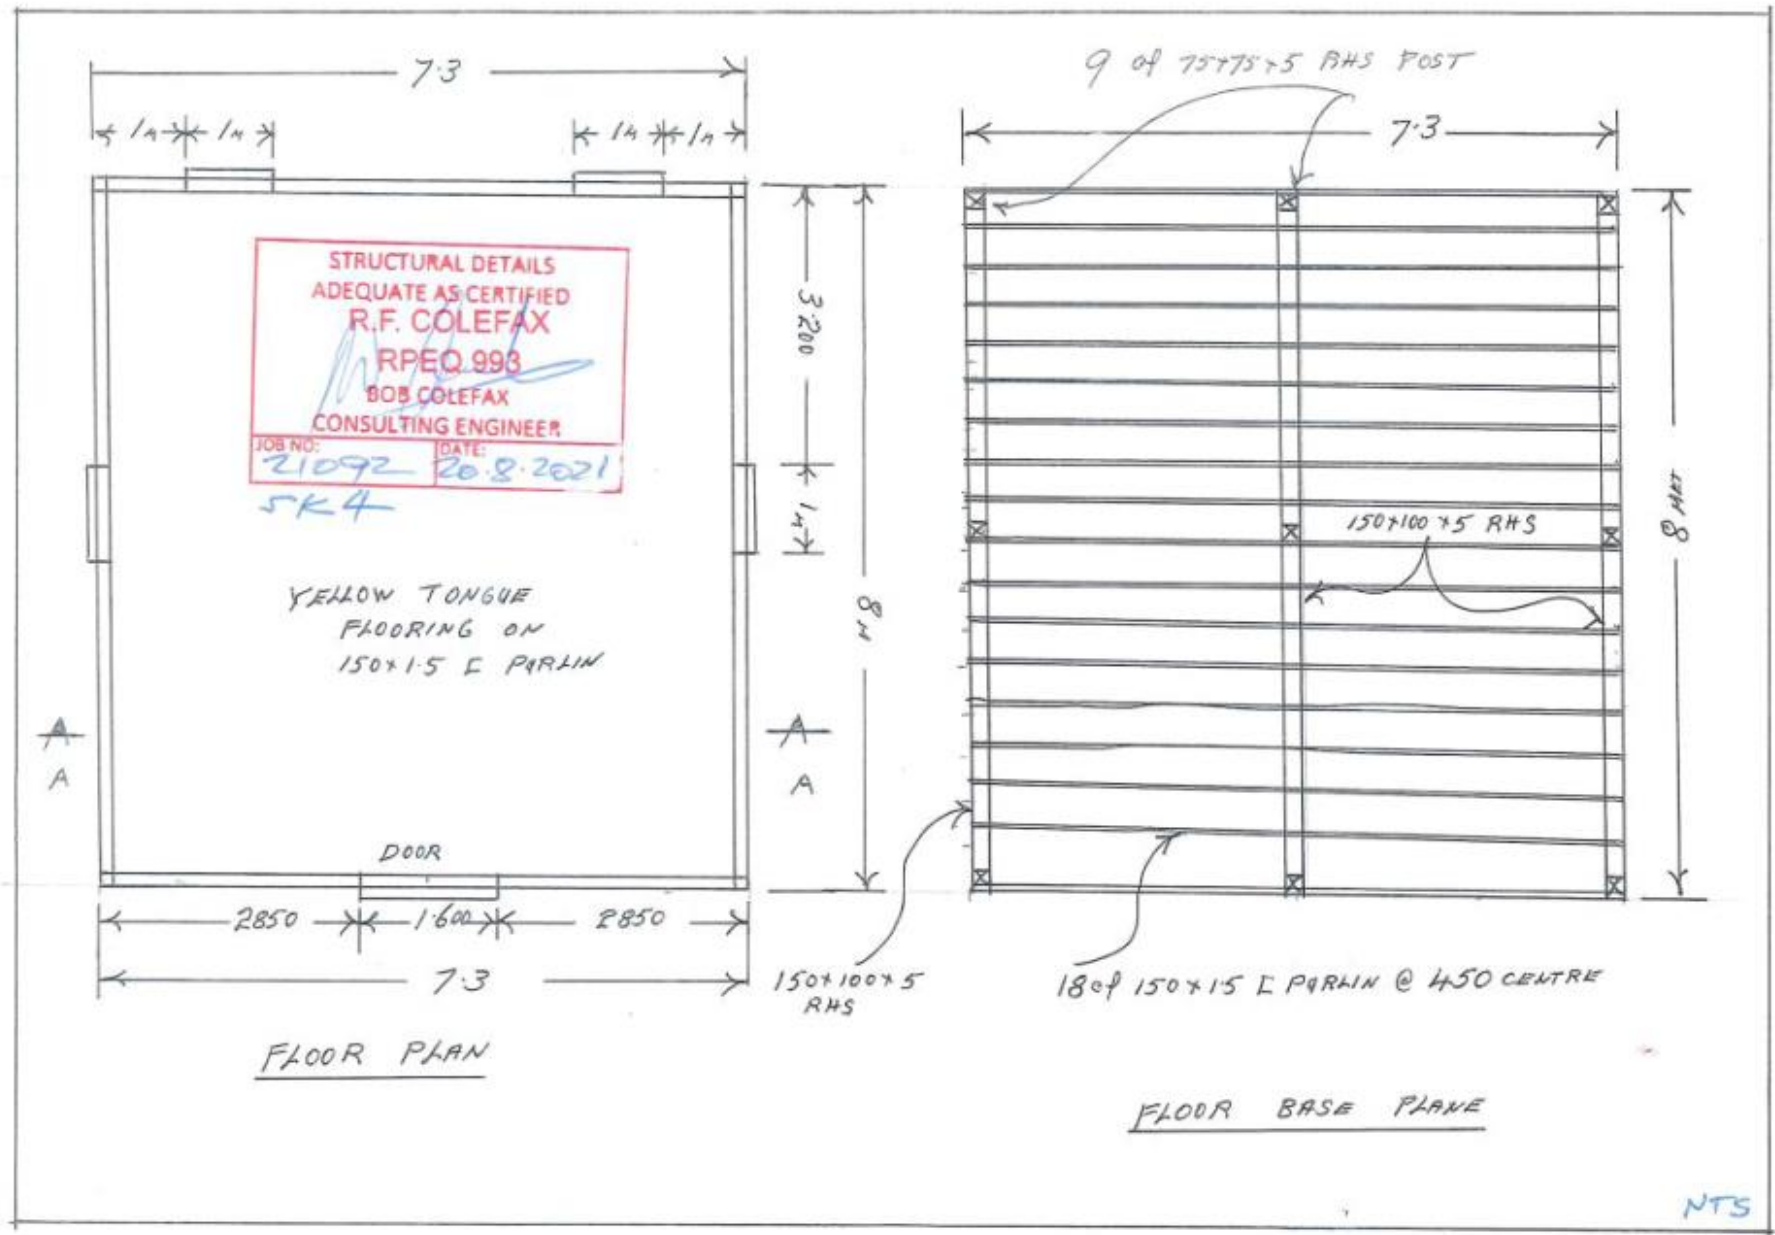 7.3
1M 1M
1M 1M
STRUCTURAL DETAILS
ADEQUATE AS CERTIFIED
R.F. COLEFAX
RPEQ 993
BOB COLEFAX
CONSULTING ENGINEER
JOB NO:
21092
DATE:
20.8.2021
SK4
YELLOW TONGUE
FLOORING ON
150x1.5 C PURLIN
3.200
1M
8M
A
A
A
A
DOOR
2850
1.600
2850
7.3
FLOOR PLAN
9 of 75x75x5 RHS POST
7.3
8 MT
150x100x5 RHS
150x100x5
RHS
18 of 150x1.5 C PURLIN @ 450 CENTRE
FLOOR BASE PLANE
NTS